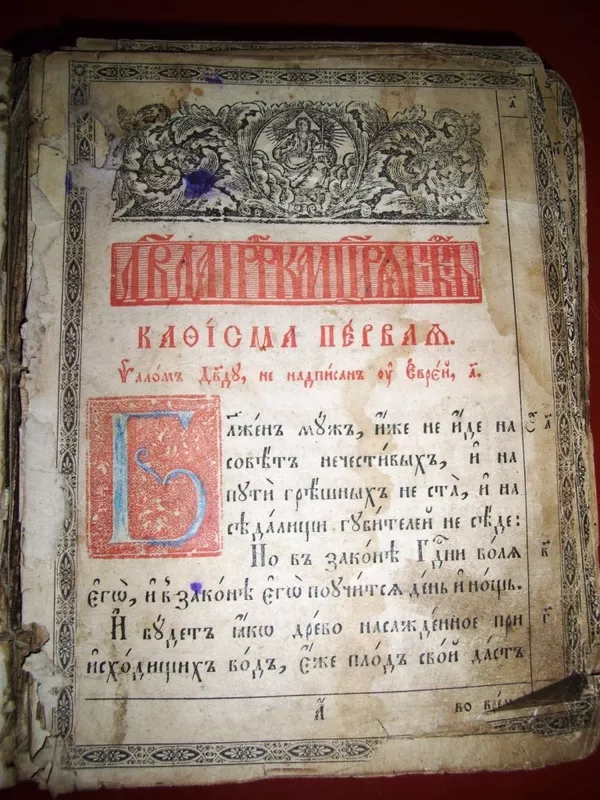 а҃
КАѲІ́СМА ПЕ́РВАѦ.
Ѱало́мъ Дв҃ду, не надпи́санъ ᲂу҆ Є҆вре́й, а҃.
Бл҃же́нъ мꙋ́жъ, и҆́же не и҆́де на
совѣ́тъ нечести́выхъ, и҆ на
пꙋти̑ грѣ́шныхъ не ста̀, и҆ на
сѣда́лищи гꙋби́телей не сѣ́де:
Но въ зако́нѣ Гдⷭ҇ни во́ля
є҆гѡ̀, и҆ в̾ зако́нѣ є҆гѡ̀ поꙋчи́тсѧ де́нь и҆ но́щь.
И҆ бꙋ́детъ ꙗ҆́кѡ дре́во насажде́нное при
и҆схо́дищихъ во́дъ, є҆́же пло́дъ сво́й да́стъ
а҃
во вре́мѧ